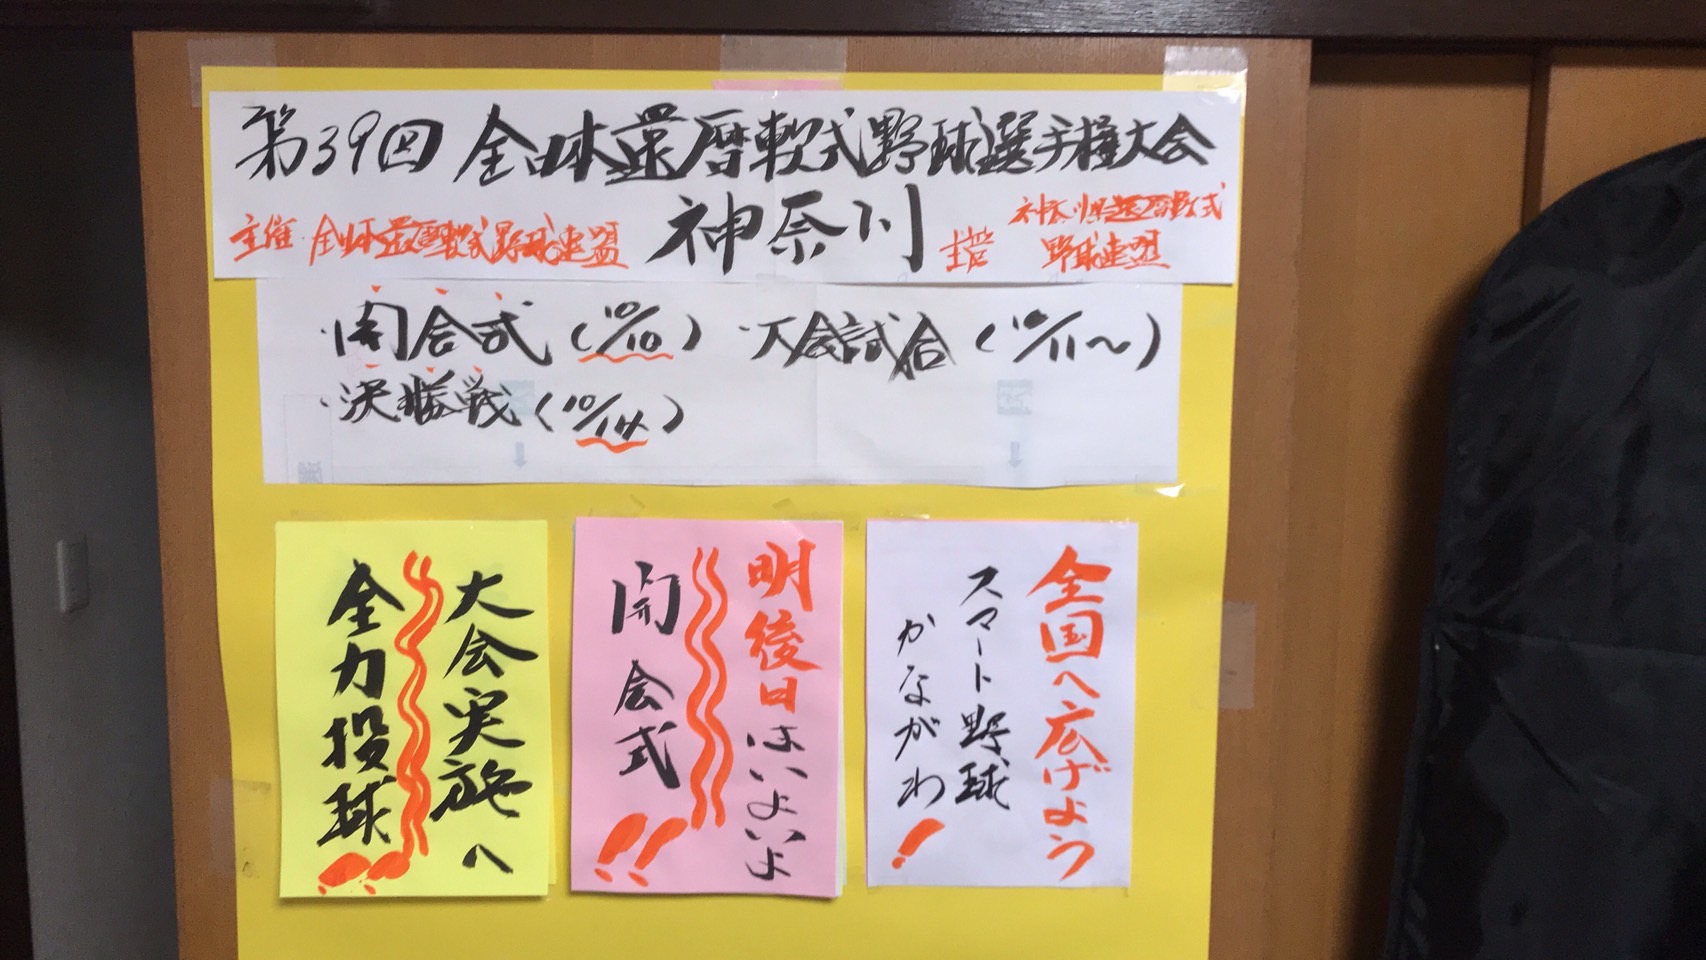 第39回 全日本還暦軟式野球選手権大会
神奈川
主催 全日本還暦軟式野球連盟
主管 神奈川県還暦軟式
野球連盟
・開会式(10/10) ・大会試合(10/11〜)
・決勝戦(10/14)
全国へ広げよう
スマート野球
かながわ!
明後日はいよいよ
開会式!!
大会実施へ
全力投球!!